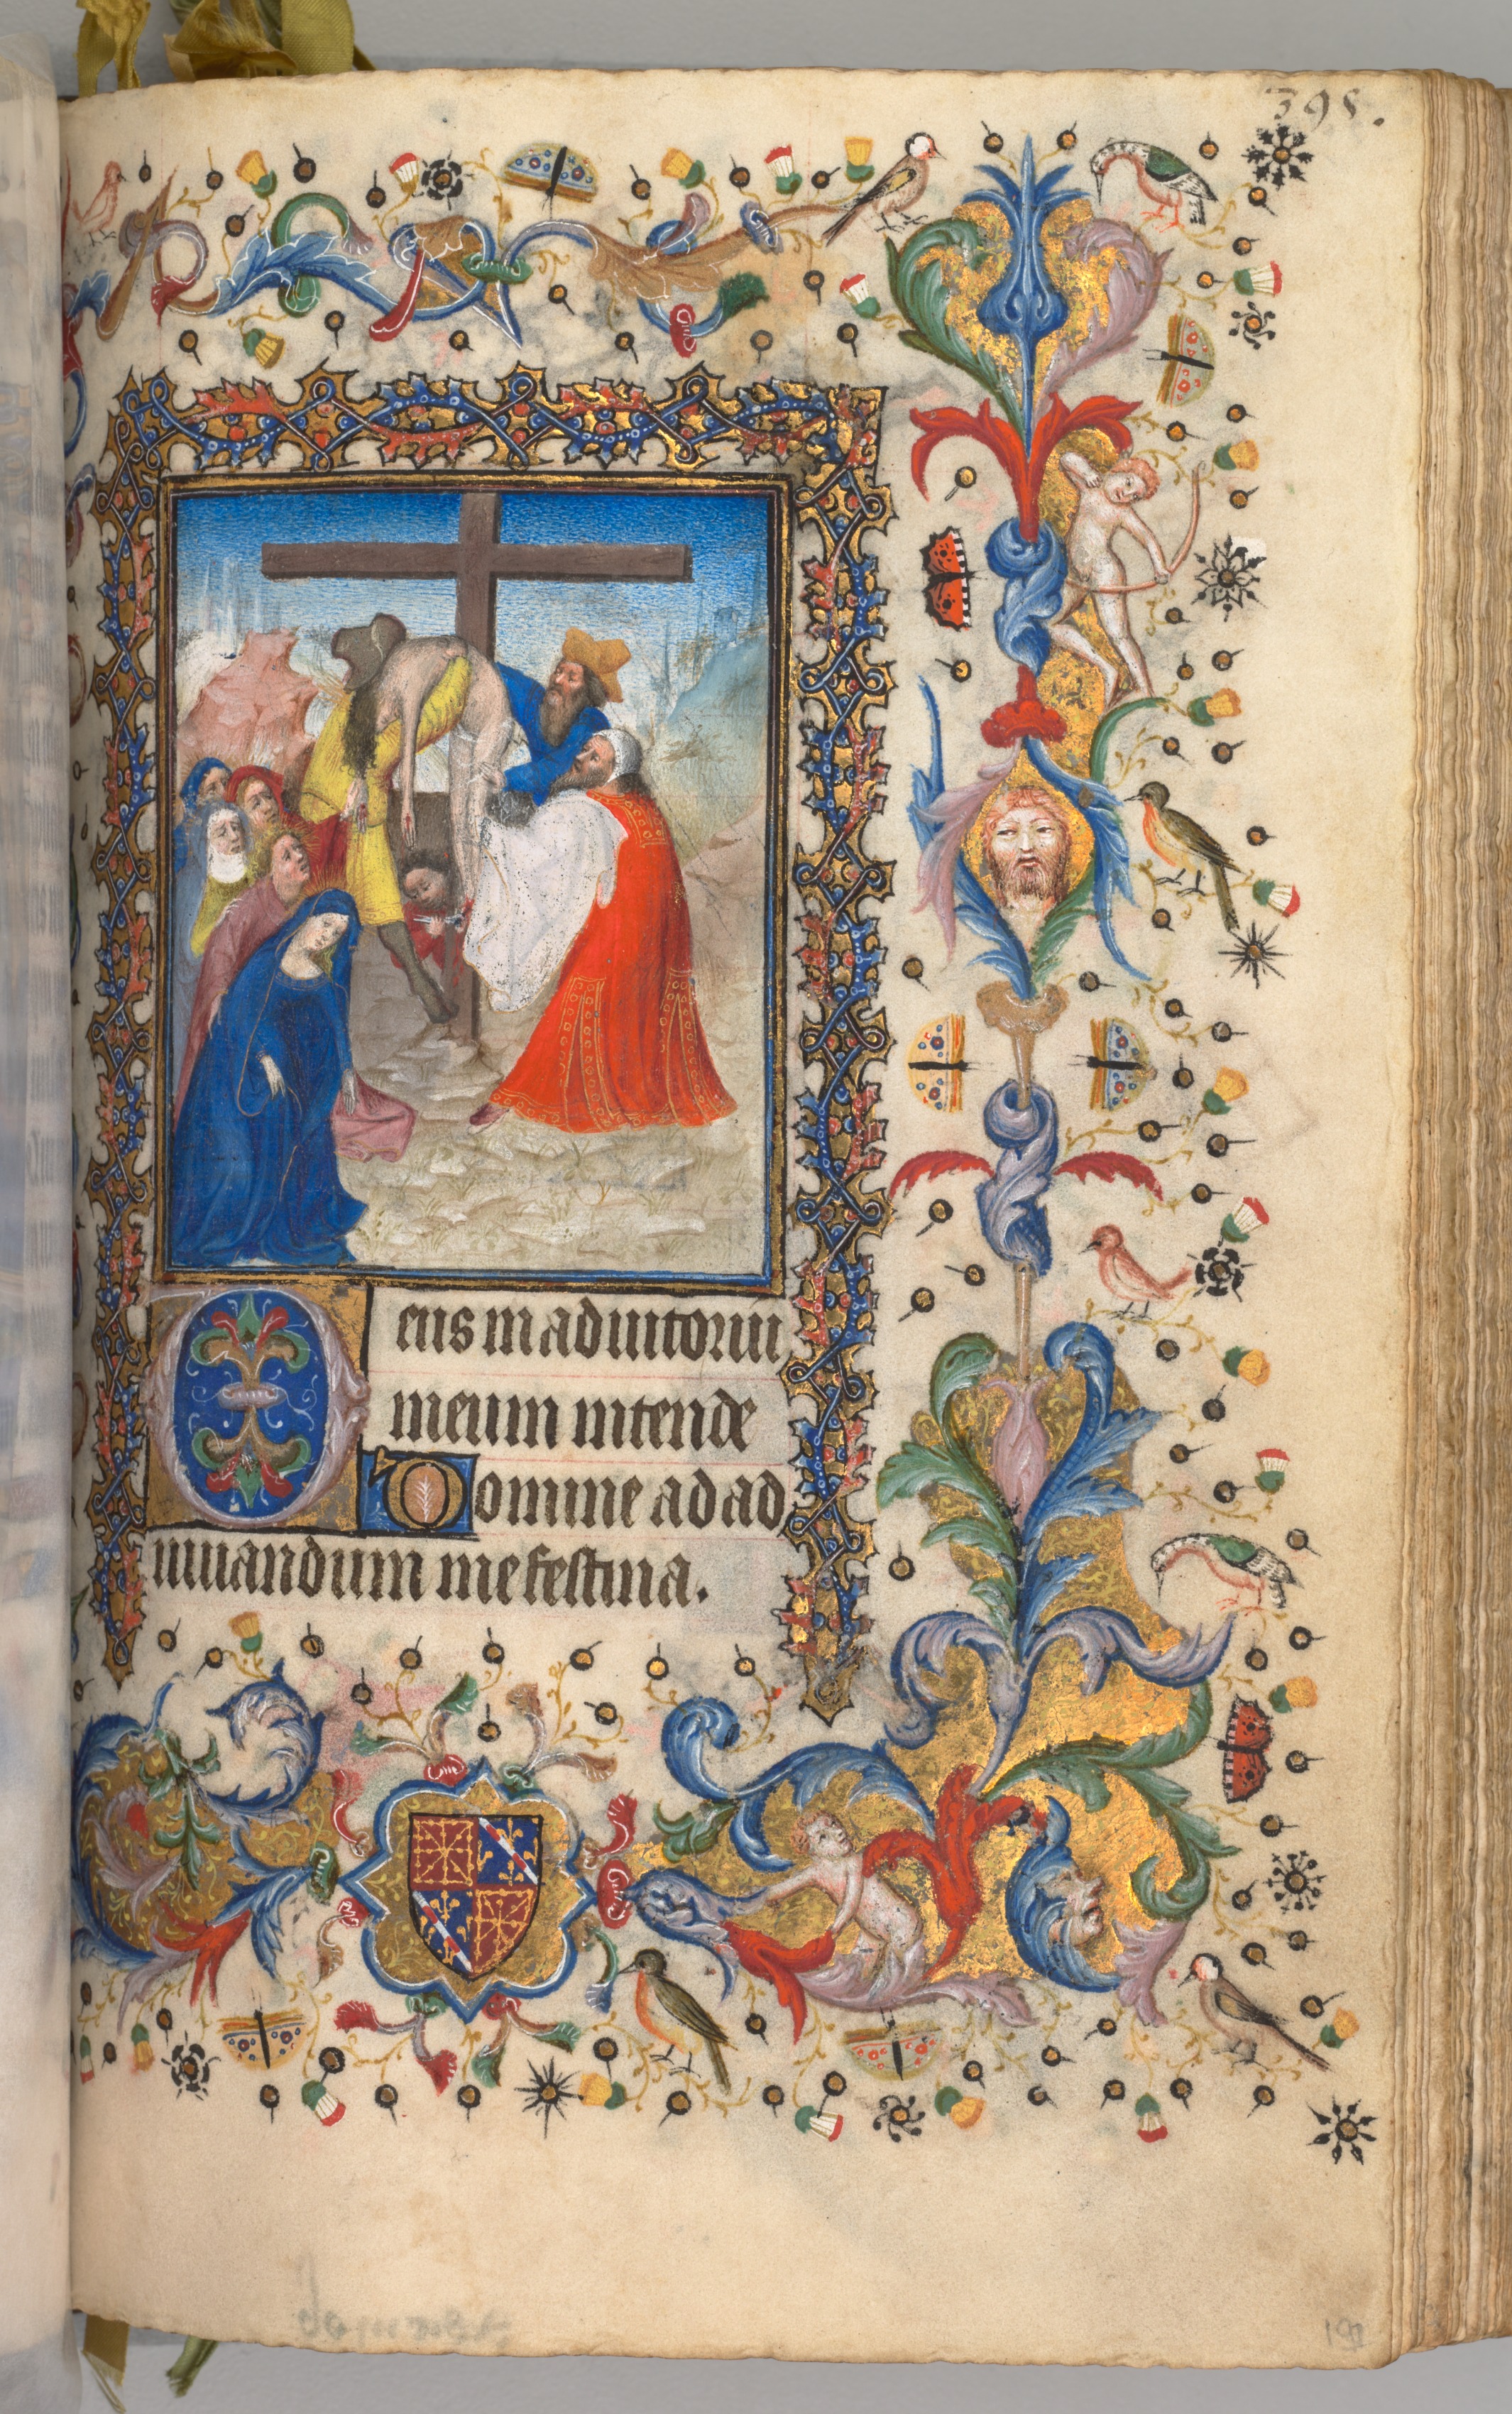 395.
Deus in adiutoriū
meum intende
Domine ad ad
iuuandum me festina.
192